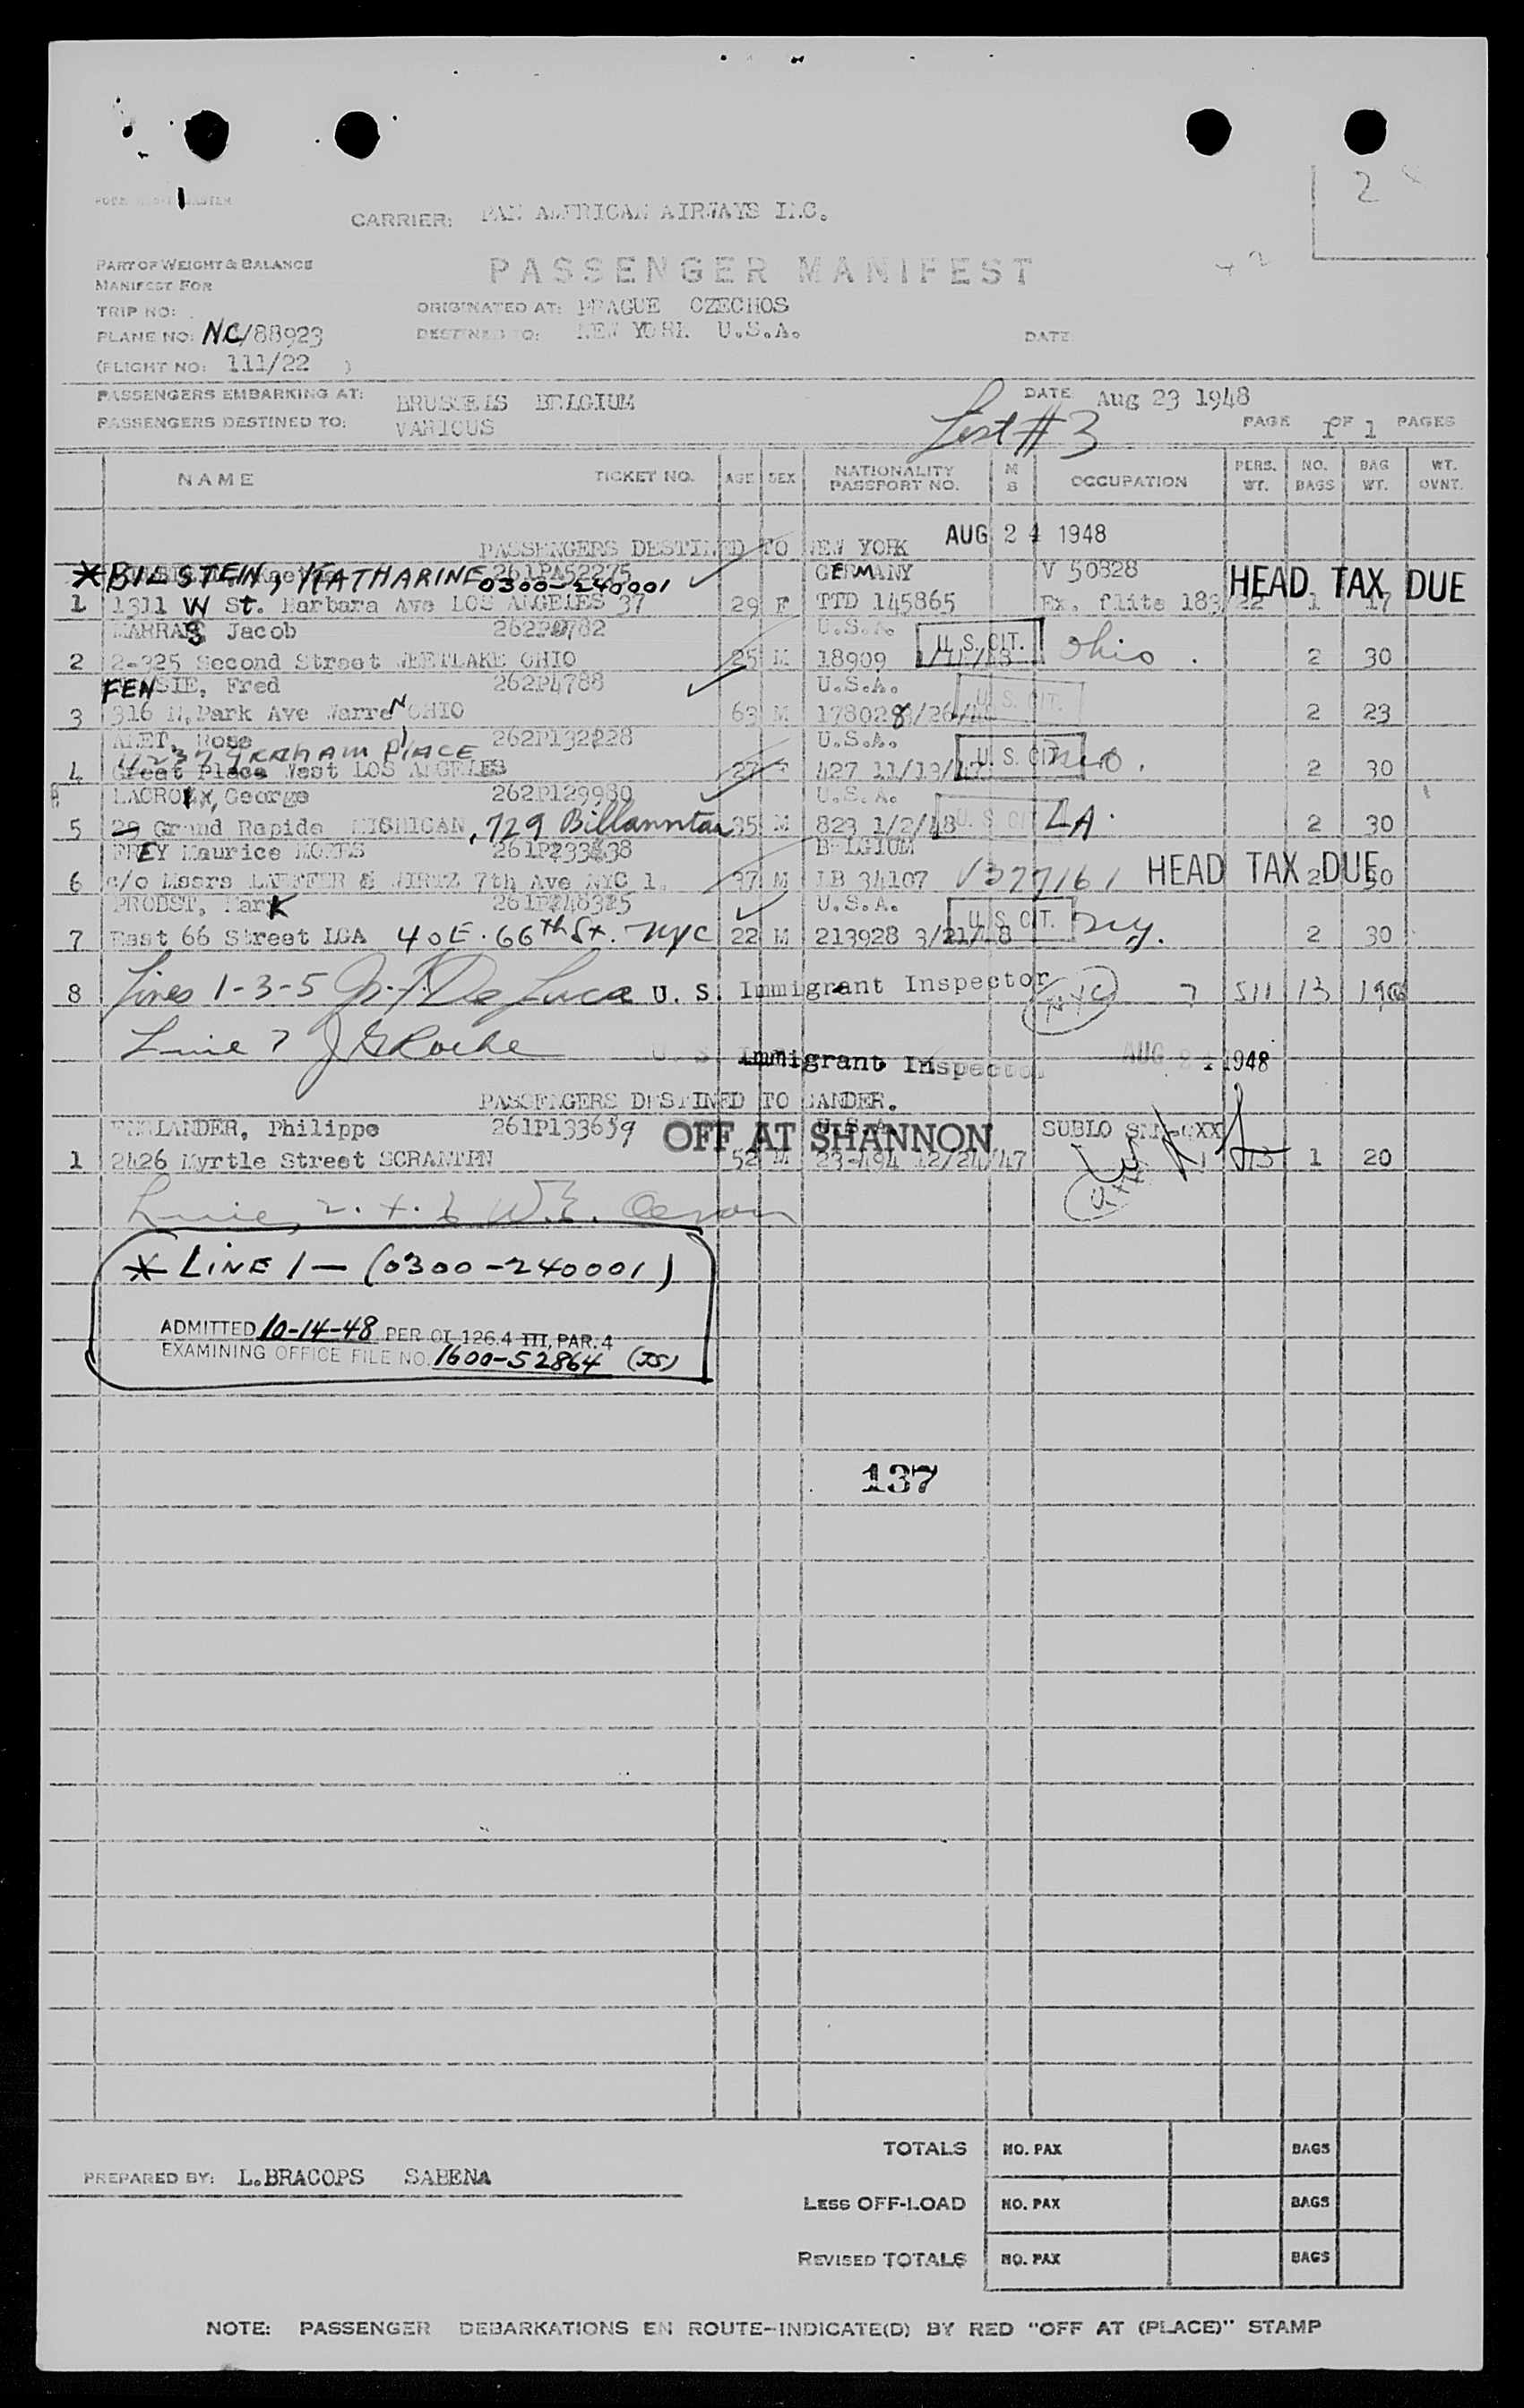 2
CARRIER: PAN AMERICAN AIRWAYS INC.
PART OF WEIGHT & BALANCE
MANIFEST FOR
PASSENGER MANIFEST
TRIP NO:
ORIGINATED AT: PRAGUE CZECHOS
PLANE NO: NC/88923
DESTINED TO: NEW YORK U.S.A.
DATE:
(FLIGHT NO: 111/22 )
PASSENGERS EMBARKING AT: BRUSSELS BELGIUM
DATE: Aug 23 1948
PASSENGERS DESTINED TO: VARIOUS
List #3
PAGE 1 OF 1 PAGES
NAME TICKET NO. AGE SEX NATIONALITY PASSPORT NO. M S OCCUPATION PERS. WT. NO. BAGS BAG WT. WT. OVNT.
PASSENGERS DESTINED TO NEW YORK AUG 24 1948
*BILSTEIN, KATHARINE 261PA52275 0300-240001 GERMANY V 50828 HEAD TAX DUE
1 1311 W St. Barbara Ave LOS ANGELES 37 29 F TTD 145865 Ex. flite 183/22 1 17
Jacob U.S.A.
2 2-325 Second Street WESTLAKE OHIO 25 M 18909 U.S. CIT. Ohio. 2 30
FENSIE, Fred 262P4788 U.S.A.
3 316 N.Park Ave Warren OHIO 63 M U.S. CIT. 2 23
Rose 262P132228 U.S.A.
4237 GRAHAM PLACE
4 Great Place West LOS ANGELES 27 F 427 11/13/47 U.S. CIT. 2 30
LACROIX, George 262P129980 U.S.A.
5 29 Grand Rapids MICHIGAN, 729 35 M 823 1/2/48 U.S. CIT. LA. 2 30
FREY Maurice BELGIUM
6 c/o Messrs 7th Ave NYC 1. 37 M LB 34107 V377161 HEAD TAX DUE 2 30
PROBST, Mark U.S.A.
7 East 66 Street LGA 40 E. 66th St. NYC 22 M 213928 3/21/48 U.S. CIT. NY. 2 30
8 Lines 1-3-5 De Luca U. S. Immigrant Inspector NYC 7 511 13 190
Line 7 J G Roche U. S. Immigrant Inspector AUG 24 1948
PASSENGERS DESTINED TO GANDER.
Philippe 261P133659 OFF AT SHANNON U.S.A. SUBLO
1 2426 Myrtle Street SCRANTPN 52 M 23-494 12/24/47 1 20
Lines 2. 4. 6 W.E.
* LINE 1 — (0300-240001)
ADMITTED 10-14-48 PER OI 126.4 III, PAR. 4
EXAMINING OFFICE FILE NO. 1600-52864 (JS)
137
TOTALS NO. PAX BAGS
PREPARED BY: L.BRACOPS SABENA
LESS OFF-LOAD NO. PAX BAGS
REVISED TOTALS NO. PAX BAGS
NOTE: PASSENGER DEBARKATIONS EN ROUTE-INDICATE(D) BY RED "OFF AT (PLACE)" STAMP